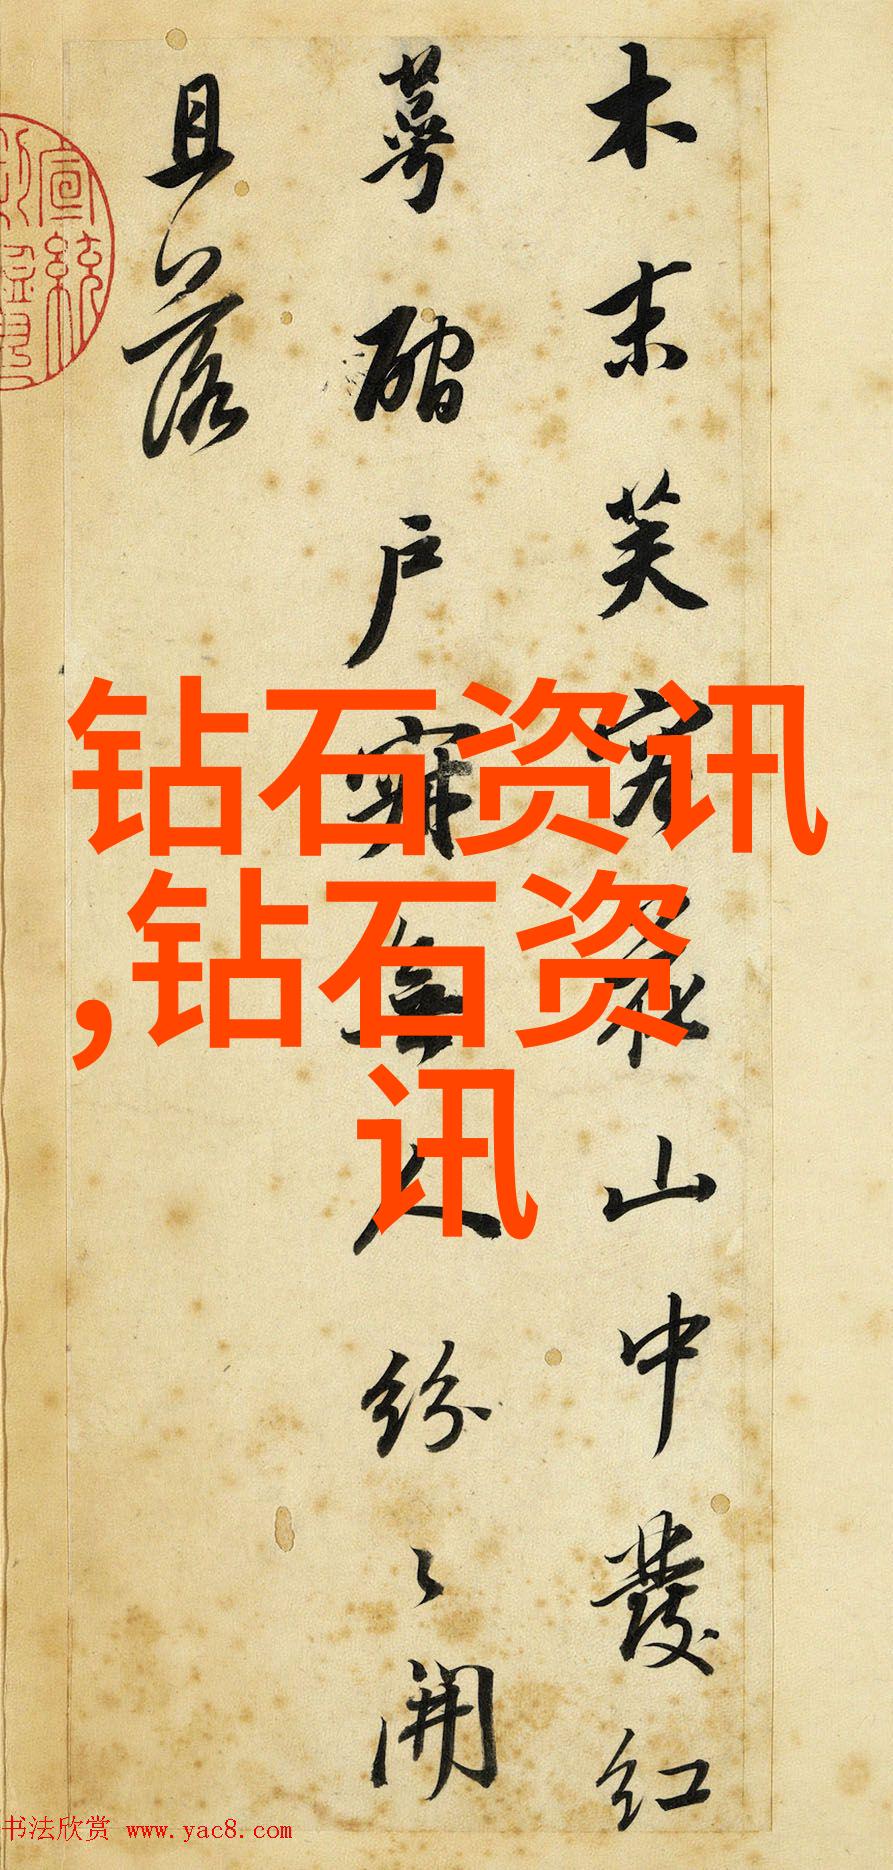 木末芙容花山中發紅
萼磵戶寂無人紛々開
且落
宣統
钻石资讯
,钻石资
讯
书法欣赏 www.yac8.com